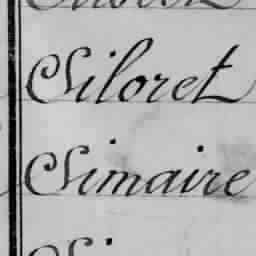 Siloret
Simaire